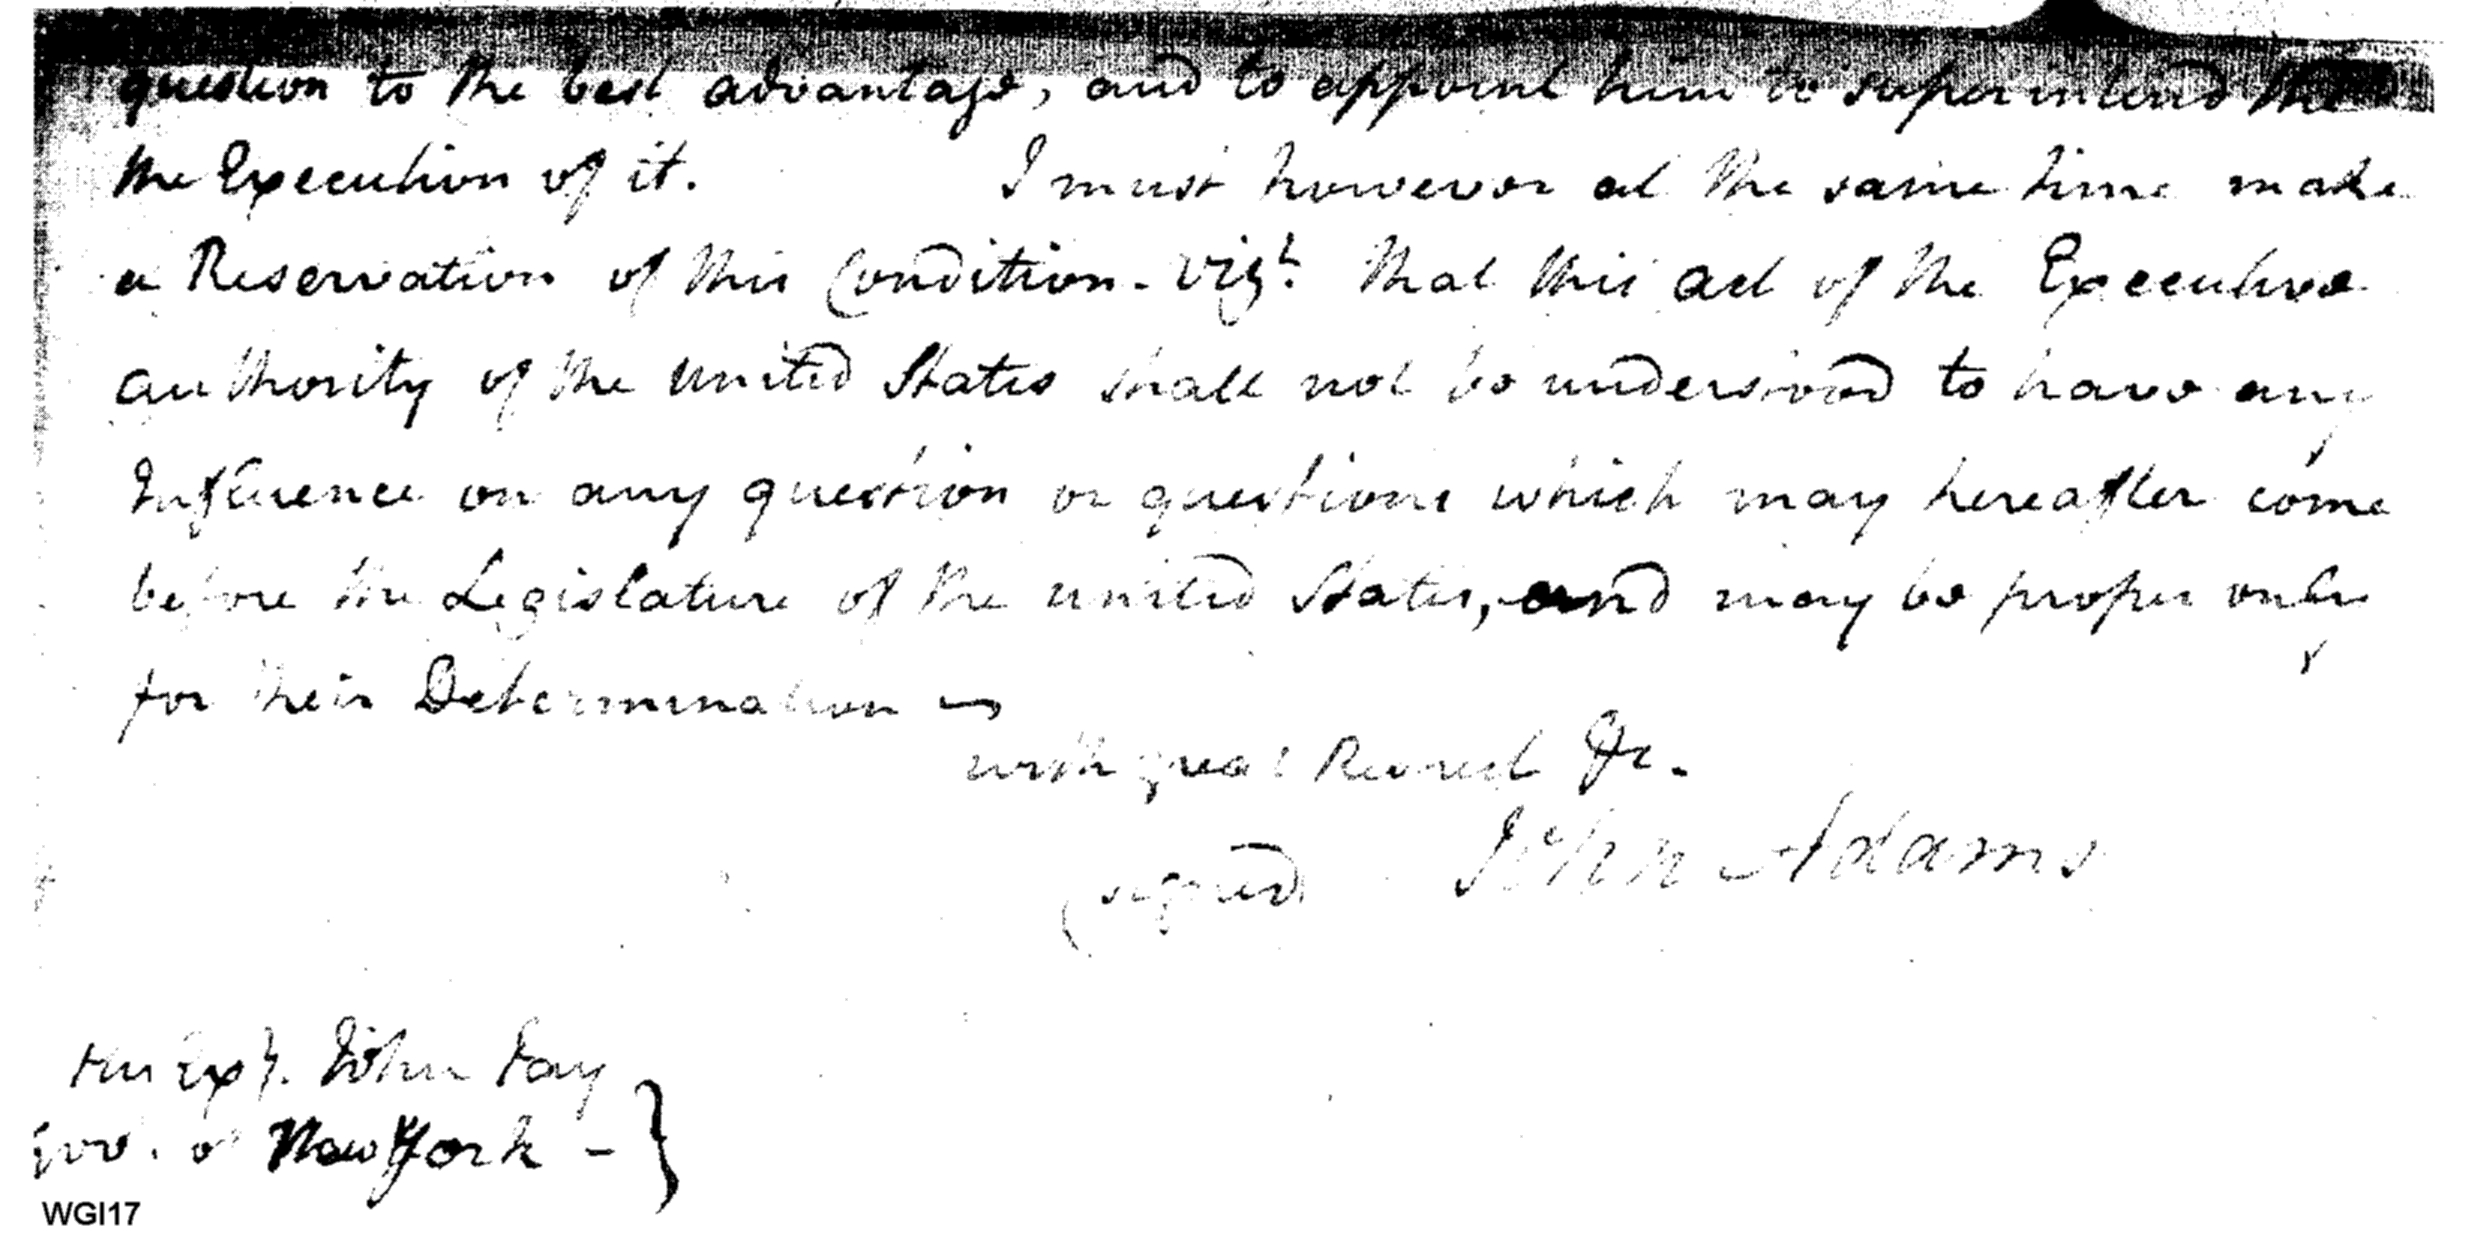 question to the best advantage, and to appoint him to superintend the
the Execution of it. I must however at the same time make
a Reservation of this Condition - vizt. that this act of the Executive
authority of the united States shall not be understood to have any
Influence on any question or questions which may hereafter come
before the Legislature of the united States, and may be proper only
for their Determination
with great Respect &c.
(signed John Adams
His Exy. John Jay
Gov. of New York - }
WGI17